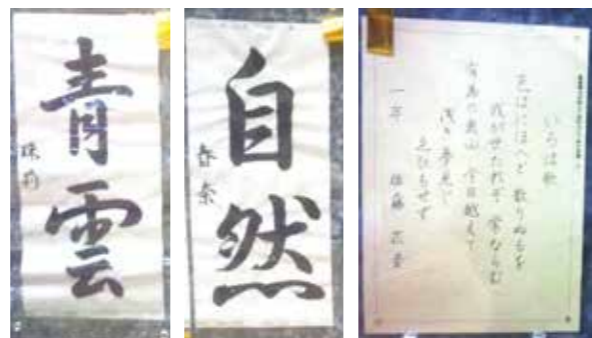 青雲
自然
春奈
いろは歌
色はにほへど 散りぬるを
我が世たれぞ 常ならむ
有為の奥山 今日越えて
浅き夢見じ
ゑひもせず
一年 佐藤